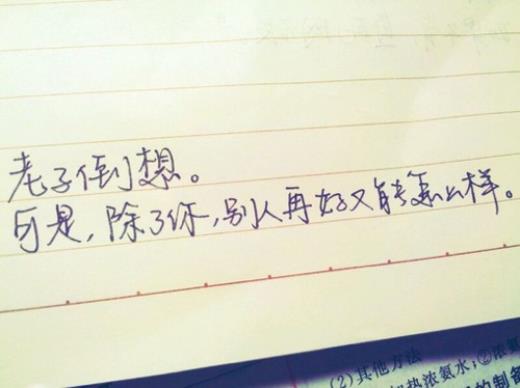 老子倒想。
可是,除了你,别人再好又能怎么样。
(2)其他方法
热浓氨水;②浓氨
的制备